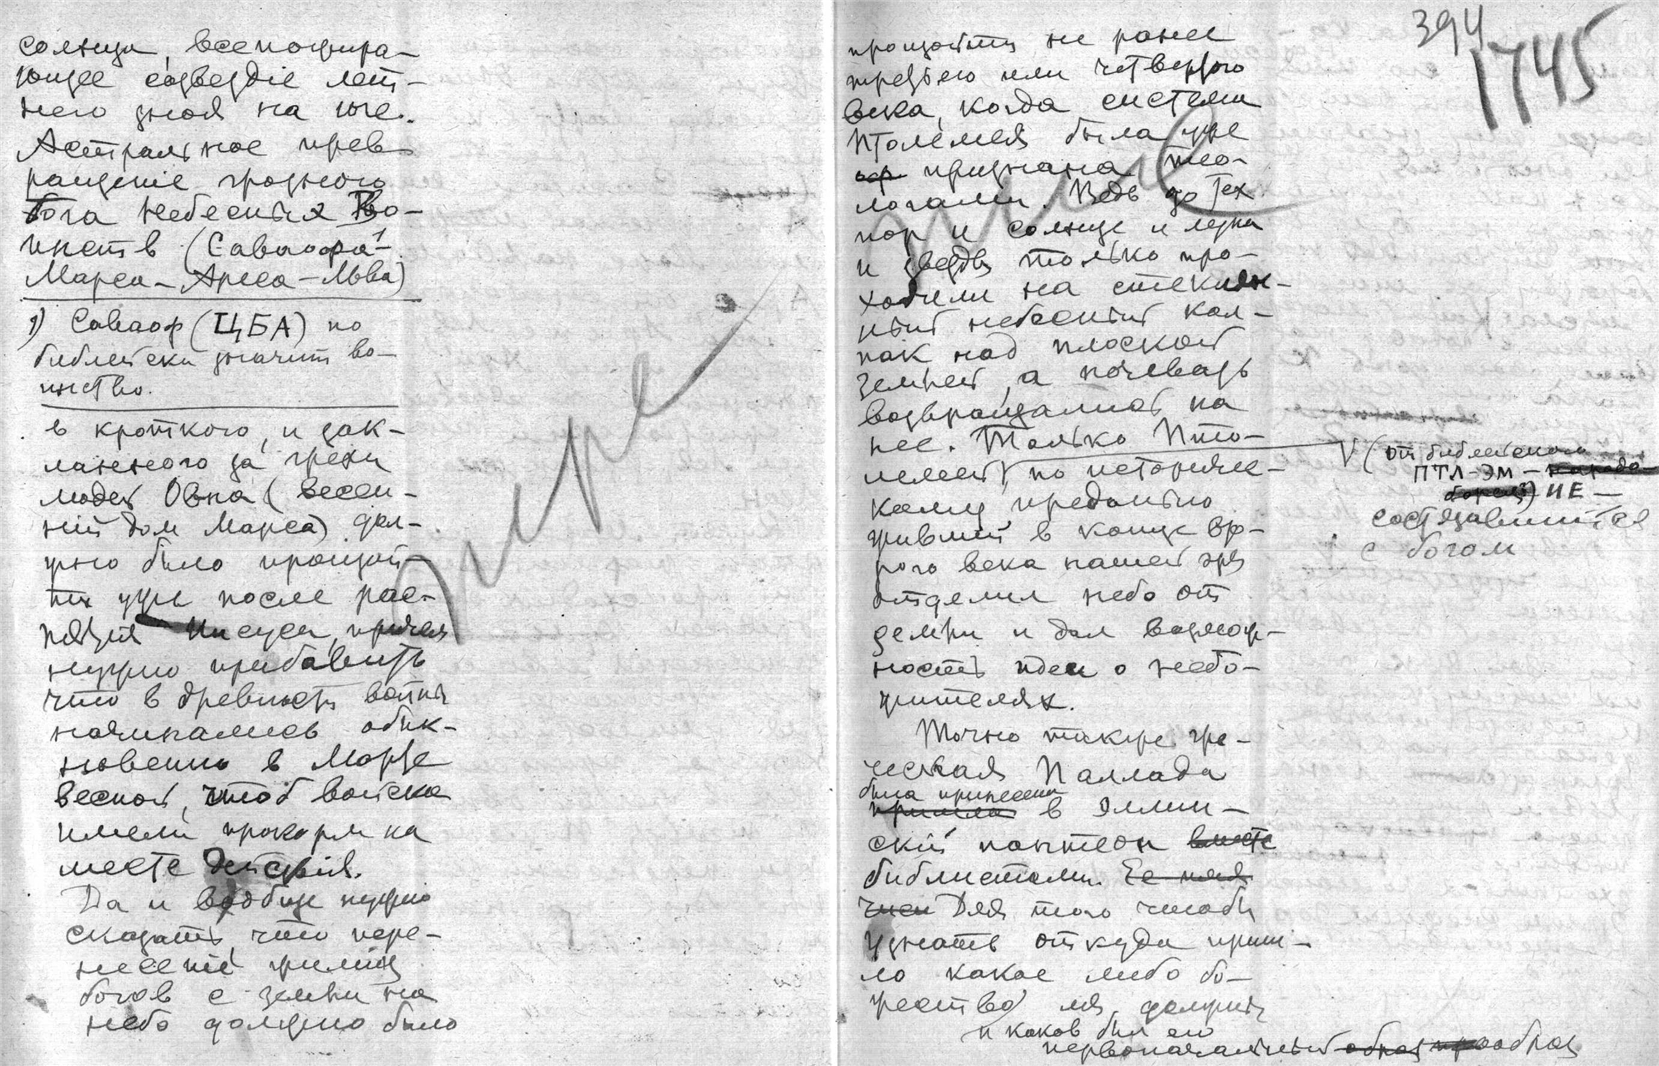 солнца, всепожира-
ющее созвездіе лет-
него зноя на юге.
Астральное прев-
ращеніе грозного
бога небесных Во-
инств (Саваофа¹-
Марса-Ареса-Льва)
1) Саваоф (ЦБА) по
библейски значит во-
инство.
в кроткого, и зак-
ланного за грехи
людей Овна (весен-
ній дом Марса) дол-
жно было произой-
ти уже после рас-
пятія Иисуса, причем
нужно прибавить
что в древности войны
начинались обык-
новенно в Марте
весной, чтоб войска
имели прокорм на
месте действія.
Да и вообще нужно
сказать, что пере-
несеніе жилищ
богов с земли на
небо должно было
394
1745
произойти не ранее
третьего или четвертого
века, когда система
Птолемея была уже
признана тео-
логами. Ведь до тех
пор и солнце и луна
и звезды только про-
ходили на стеклян-
ный небесный кол-
пак над плоской
землей, а ночевать
возвращались на
нее. Только Пто-
лемей V по историчес-
кому преданью
живший в конце вто-
рого века нашей эры
отделил небо от
земли и дал возмож-
ность идеи о небо-
жителях.
V (от библейского
ПТЛ-ЭМ -
ИЕ -
состязавшийся
с богом
Точно также гре-
ческая Паллада
была принесена
в Эллин-
скій пантеон вместе
библистами. Ее
Для того чтобы
узнать откуда приш-
ло какое либо бо-
жество мы должны
и каков был его
первоначальный образ прообраз